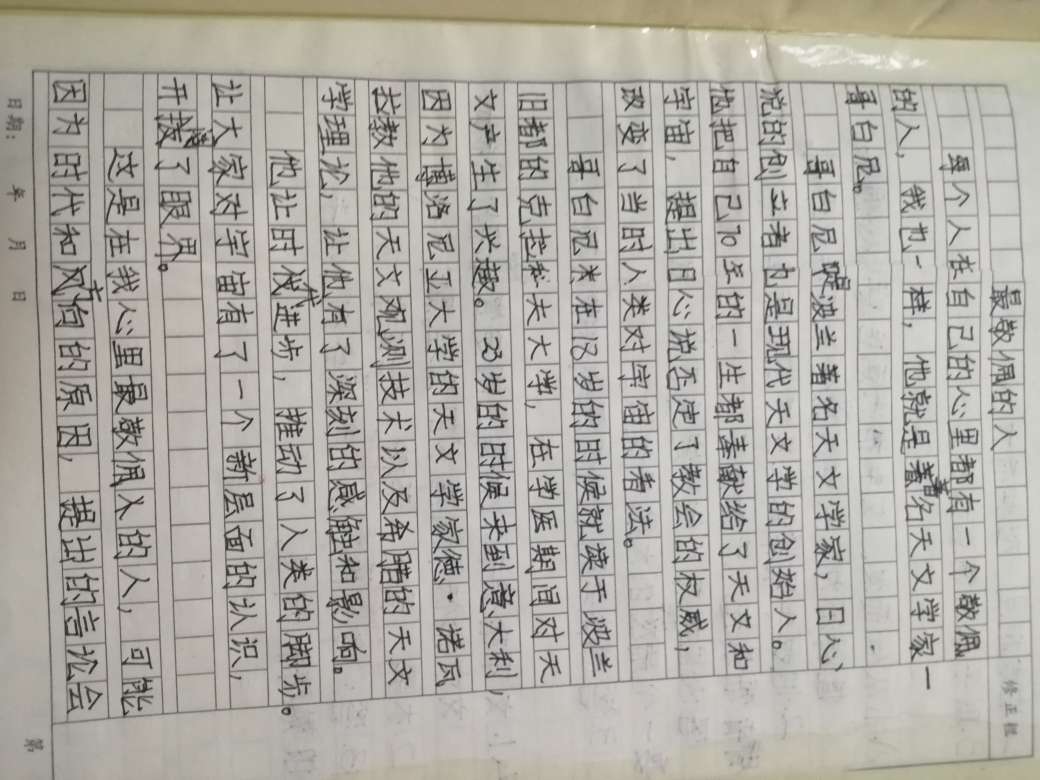 最敬佩的人
每个人在自己的心里都有一个敬佩
的人，我也一样，他就是著名天文学家一
哥白尼。
哥白尼是波兰著名天文学家，日心
说的创立者也是现代天文学的创始人。
他把自己70年的一生都奉献给了天文和
宇宙，提出日心说否定了教会的权威，
改变了当时人类对宇宙的看法。
哥白尼米在18岁的时候就读于波兰
旧都的克拉科夫大学，在学医期间对天
文产生了兴趣。23岁的时候来到意大利，
因为博洛尼亚大学的天文学家德·诺瓦
拉教他的天文观测技术以及希腊的天文
学理论，让他有了深刻的感触和影响。
他让时代进步，推动了人类的脚步。
让大家对宇宙有了一个新层面的认识，
开拨了眼界。
这是在我人心里最敬佩人的人，可能
因为时代和方向的原因，提出的言论会
日期： 年 月 日
第
修正栏